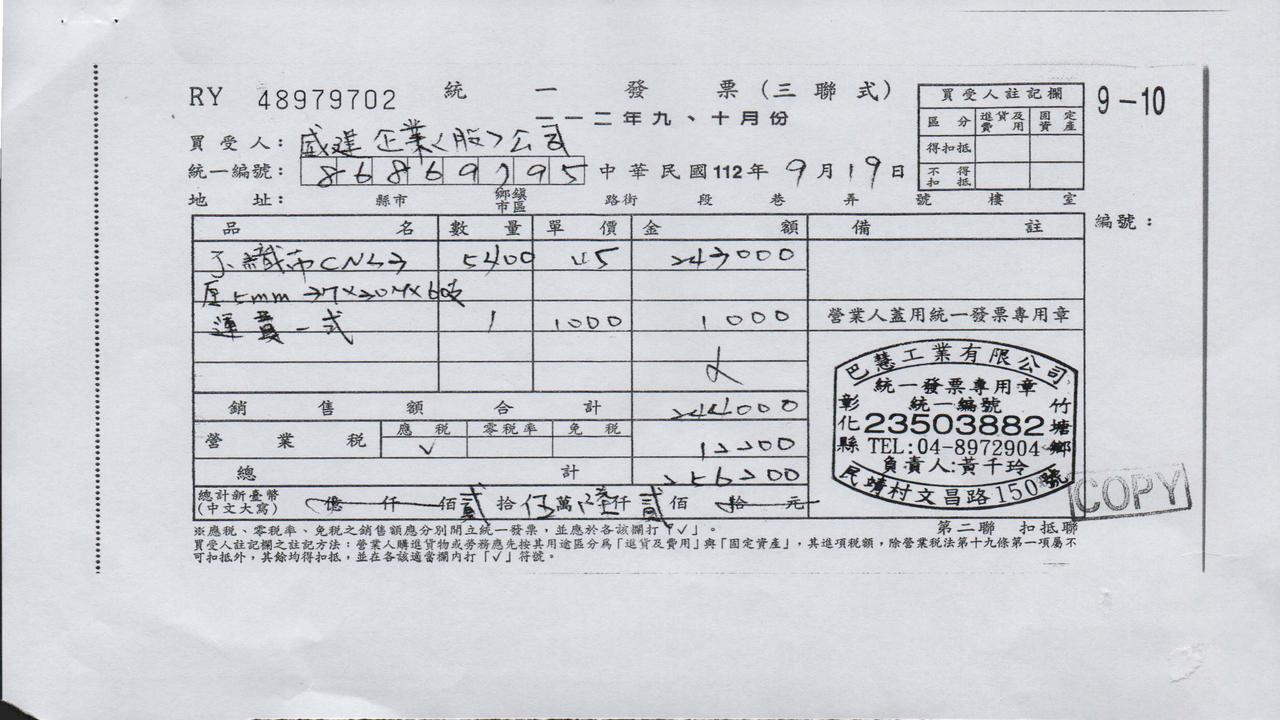 RY 48979702 統一發票(三聯式)
一一二年九、十月份
9-10
買受人註記欄
區分 進貨及費用 固定資產
得扣抵
不得扣抵
買受人: 盛建企業(股)公司
統一編號: 86869795 中華民國112年9月19日
地址: 縣市 鄉鎮市區 路街 段 巷 弄 號 樓 室
編號:
品名 數量 單價 金額 備註
不織布CN43 5400 45 243000
厚5mm 3M×30M×60支
運費一式 1 1000 1000
營業人蓋用統一發票專用章
銷售額合計 244000
營業稅 應稅 零稅率 免稅
√ 12200
總計 256200
總計新臺幣
(中文大寫) 億仟佰貳拾伍萬陸仟貳佰拾元
巴慧工業有限公司
統一發票專用章
統一編號
彰化縣 23503882 竹塘鄉
TEL:04-8972904
負責人:黃千玲
民靖村文昌路150號
COPY
第二聯 扣抵聯
※應稅、零稅率、免稅之銷售額應分別開立統一發票,並應於各該欄打「√」。
買受人註記欄之註記方法:營業人購進貨物或勞務應先按其用途區分為「進貨及費用」與「固定資產」,其進項稅額,除營業稅法第十九條第一項屬不
可扣抵外,其餘均得扣抵,並在各該適當欄內打「√」符號。